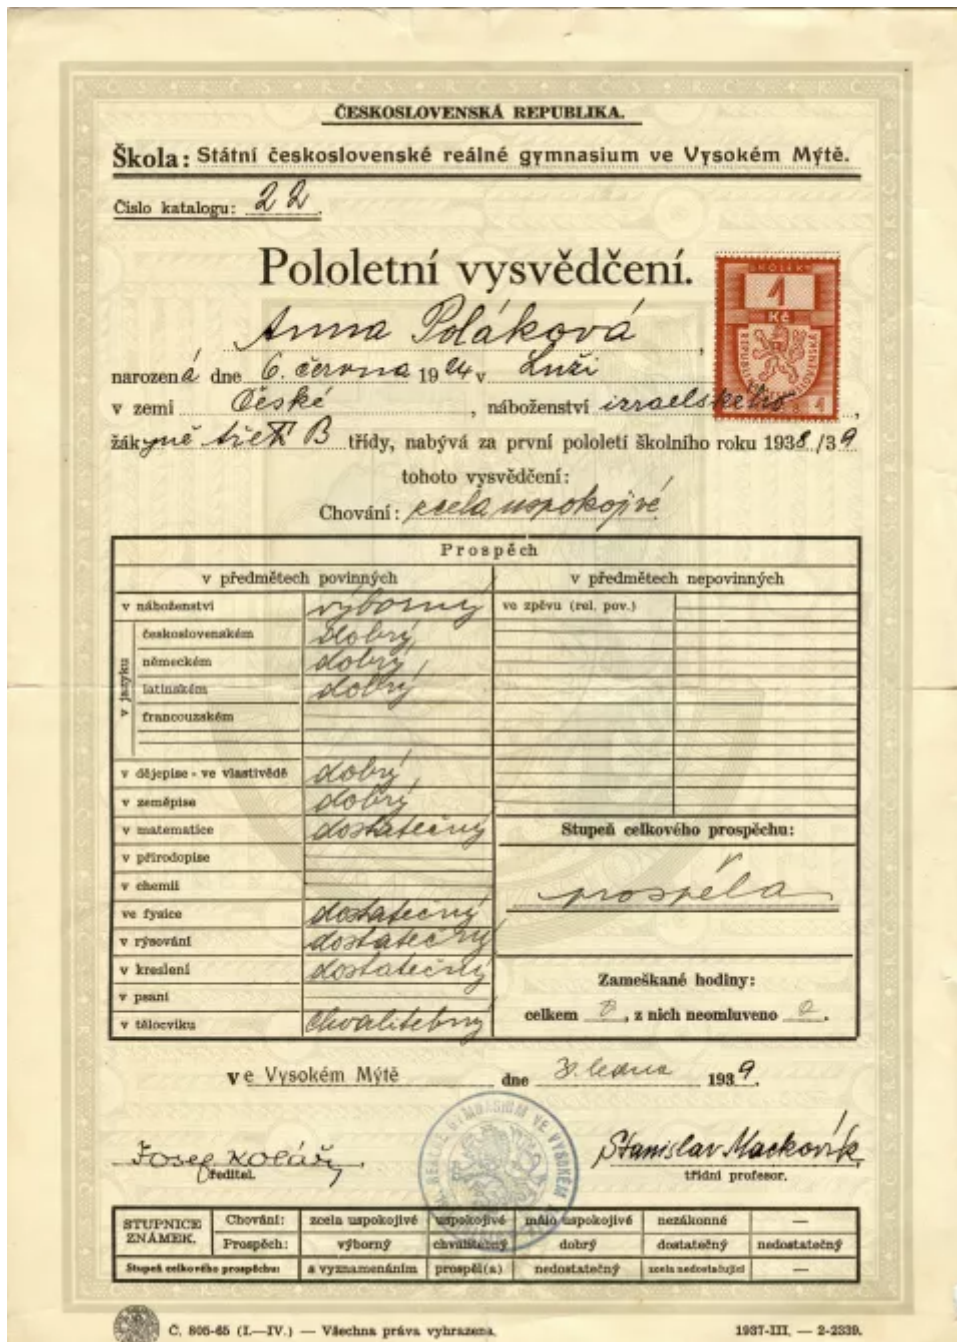 ČESKOSLOVENSKÁ REPUBLIKA.
Škola: Státní československé reálné gymnasium ve Vysokém Mýtě.
Číslo katalogu: 22.
Pololetní vysvědčení.
KOLEK
1
Kč
1
Anna Poláková,
narozená dne 6. června 1924 v Luži
v zemi České, náboženství izraelského,
žákyně třetí B třídy, nabývá za první pololetí školního roku 1938/39
tohoto vysvědčení:
Chování: zcela uspokojivé
Prospěch
v předmětech povinných
v náboženství výborný
v jazyku
československém dobrý
německém dobrý
latinském dobrý
francouzském
v dějepise - ve vlastivědě dobrý
v zeměpise dobrý
v matematice dostatečný
v přírodopise
v chemii
ve fysice dostatečný
v rýsování dostatečný
v kreslení dostatečný
v psaní
v tělocviku chvalitebný
v předmětech nepovinných
ve zpěvu (rel. pov.)
Stupeň celkového prospěchu:
prospěla
Zameškané hodiny:
celkem 0, z nich neomluveno 0.
ve Vysokém Mýtě dne ledna 1939.
REÁLNÉ GYMNASIUM VE VYSOKÉM
Josef Kolář
ředitel.
Stanislav Mackovík
třídní profesor.
STUPNICE ZNÁMEK. Chování: zcela uspokojivé uspokojivé málo uspokojivé nezákonné —
Prospěch: výborný chvalitebný dobrý dostatečný nedostatečný
Stupeň celkového prospěchu: s vyznamenáním prospěl(a) nedostatečný zcela nedostačující —
Č. 805-65 (I.—IV.) — Všechna práva vyhrazena.
1937-III. — 2-2339.